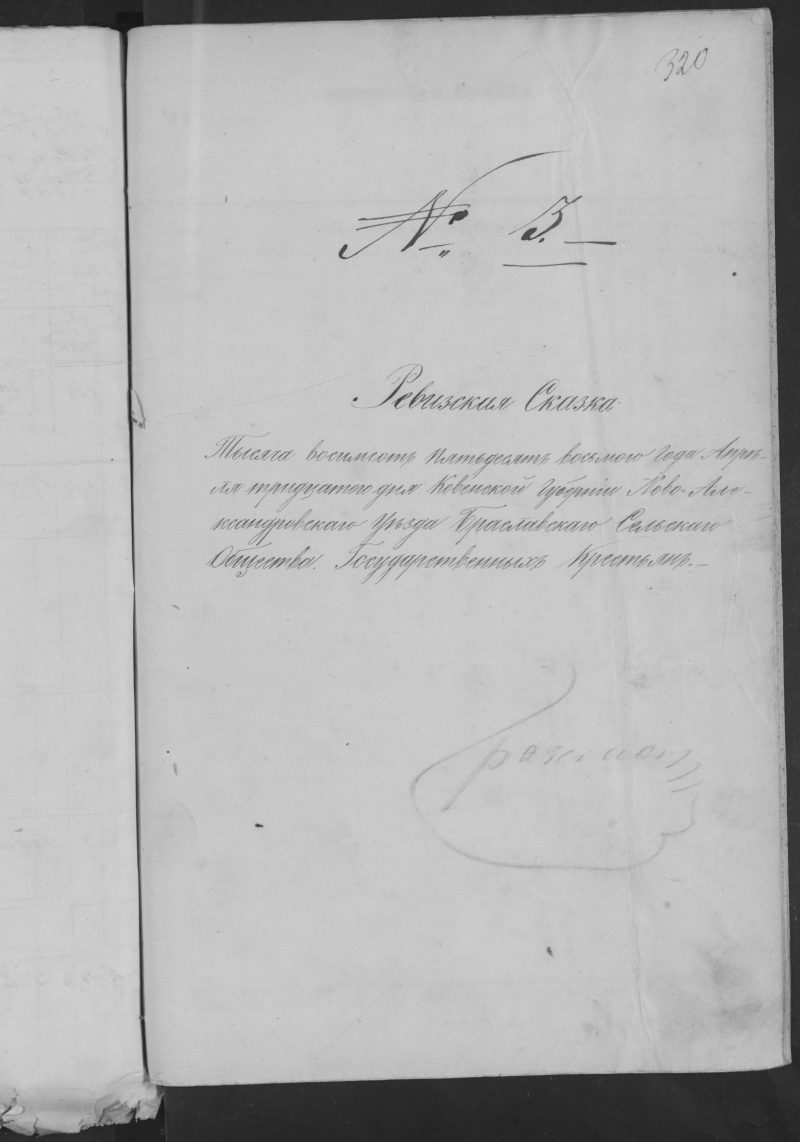 320
№ 3.
Ревизская Сказка
Тысяча восимсотъ пятьдесятъ восьмого года Апрѣ-
ля тридцатого дня Ковенской Губерніи Ново-Але-
ксандровскаго Уѣзда Браславскаго Сельскаго
Общества. Государственныхъ Крестьянъ.